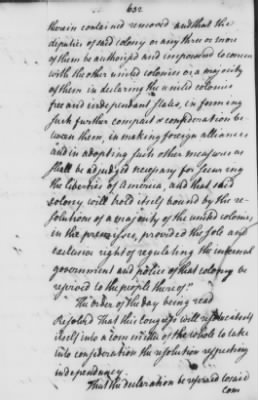 632
therein contained removed and that the
deputies of said colony or any three or more
of them be authorised and impowered to concur
with the other united colonies or a majority
of them in declaring the united colonies
free and independant states, in forming
such further compact & confederation be-
tween them, in making foreign alliances
and in adopting such other measures as
shall be adjudged necessary for securing
the liberties of America, and that said
colony will hold itself bound by the re-
solutions of a majority of the united colonies
in the premisses, provided the sole and
exclusive right of regulating the internal
government and police of that colony be
reserved to the people thereof."
The order of the day being read
Resolved That this Congress will resolve itself
itself into a committee of the whole to take
into consideration the resolution respecting
independancy.
That the declaration be referred to said
Com